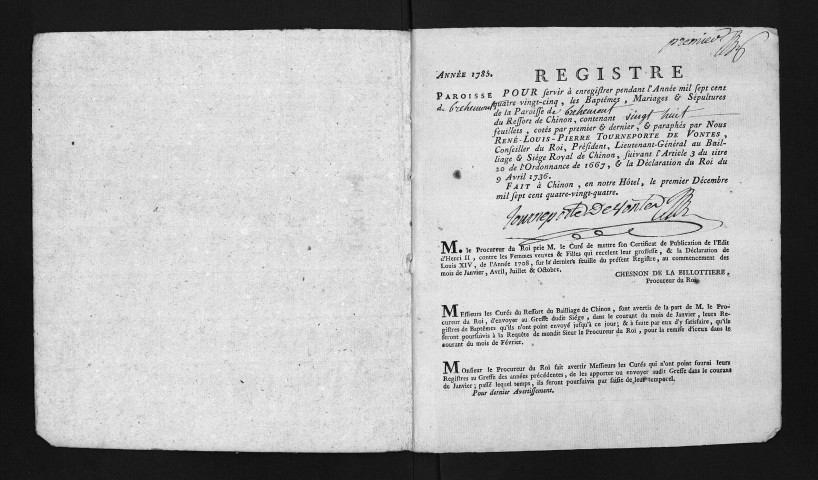 premier
ANNÉE 1785.
REGISTRE
PAROISSE
de brehemont
POUR servir à enregistrer pendant l'Année mil sept cent
quatre vingt-cinq, les Baptêmes, Mariages & Sépultures
de la Paroisse de brehemont
du Ressort de Chinon, contenant vingt huit
feuillets, cotés par premier & dernier, & paraphés par Nous
RENÉ-LOUIS-PIERRE TOURNEPORTE DE VONTES,
Conseiller du Roi, Président, Lieutenant-Général au Bail-
liage & Siége Royal de Chinon, suivant l'Article 3 du titre
20 de l'Ordonnance de 1667, & la Déclaration du Roi du
9 Avril 1736.
FAIT à Chinon, en notre Hôtel, le premier Décembre
mil sept cent quatre-vingt-quatre.
Tourneporte De Vontes
M. le Procureur du Roi prie M. le Curé de mettre son Certificat de Publication de l'Edit
d'Henri II, contre les Femmes veuves & Filles qui recelent leur grossesse, & la Déclaration de
Louis XIV, de l'Année 1708, sur la derniere feuille du présent Registre, au commencement des
mois de Janvier, Avril, Juillet & Octobre.
CHESNON DE LA BILLOTTIERE,
Procureur du Roi.
Messieurs les Curés du Ressort du Bailliage de Chinon, sont avertis de la part de M. le Pro-
cureur du Roi, d'envoyer au Greffe dudit Siége, dans le courant du mois de Janvier, leurs Re-
gistres de Baptêmes qu'ils n'ont point envoyé jusqu'à ce jour; & à faute par eux d'y satisfaire, qu'ils
seront poursuivis à la Requête de mondit Sieur le Procureur du Roi, pour la remise d'iceux dans le
courant du mois de Février.
Monsieur le Procureur du Roi fait avertir Messieurs les Curés qui n'ont point fourni leurs
Registres au Greffe des années précédentes, de les apporter ou envoyer audit Greffe dans le courant
de Janvier; passé lequel temps, ils seront poursuivis par saisie de leur temporel.
Pour dernier Avertissement.